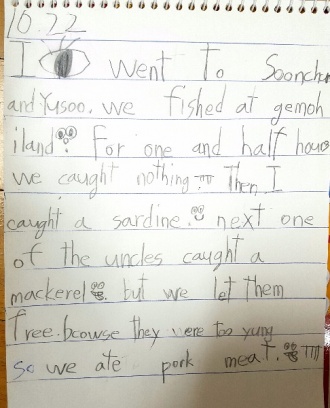 10.22
I went To Soonchun
and Yusoo. we fished at gemoh
iland. For one and half hours
we caught nothing. Then I
caught a sardine. next one
of the uncles caught a
mackerel. but we let them
free. bcowse they were too yung
so we ate pork meat.